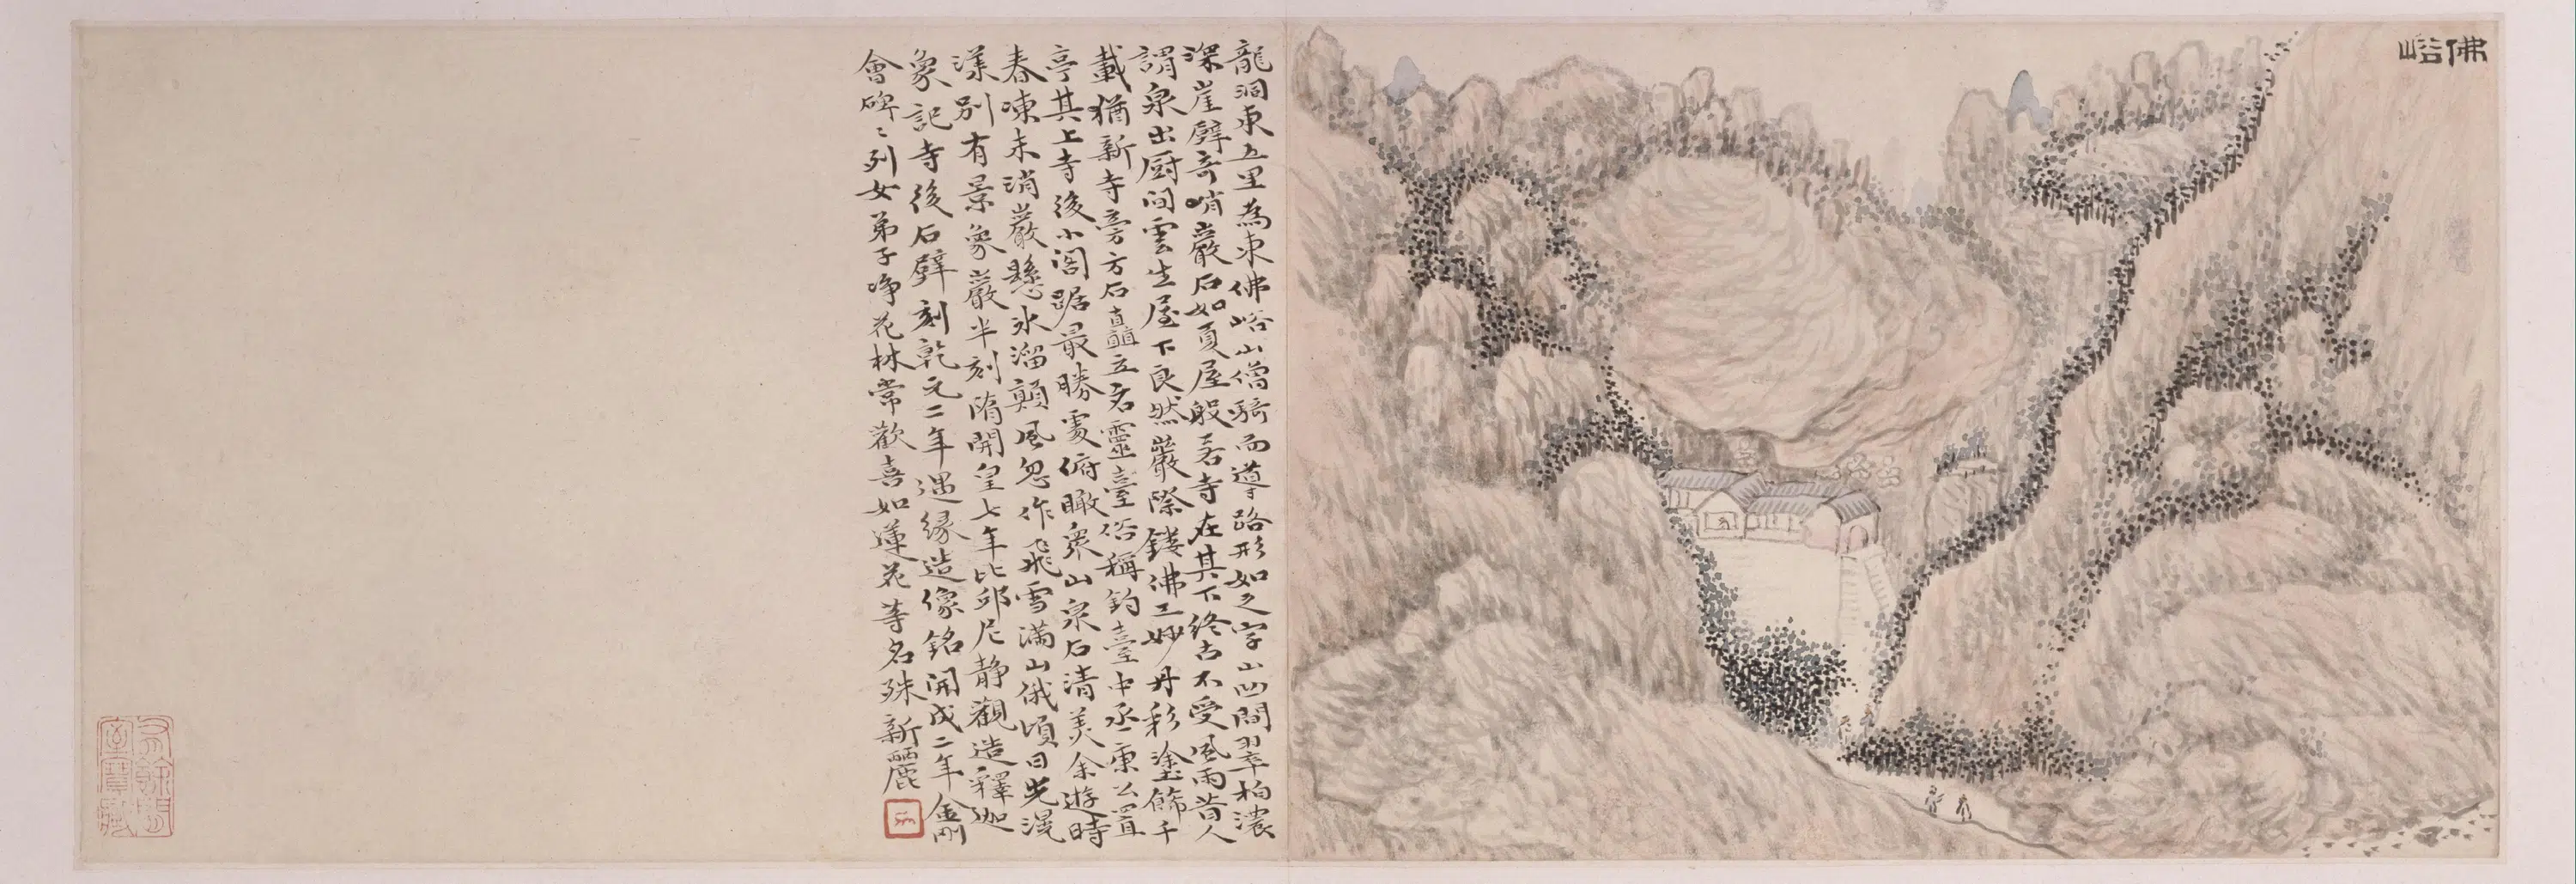 佛峪
龍洞東五里為東佛峪山僧騎而導路形如之字山凹間翠柏濃
深崖壁奇峭巖石如夏屋般若寺在其下終古不受風雨昔人
謂泉出厨间雲生屋下良然巖際鏤佛工妙丹彩塗飾千
載猶新寺旁方石矗立名靈臺俗稱釣臺中丞東公置
亭其上寺後小阁踞最勝處俯瞰衆山泉石清美余遊時
春凍未消巖懸氷溜顛風忽作飛雪滿山俄頃日光滉
漾别有景象巖半刻隋開皇七年比邱尼静觀造釋迦
象記寺後石壁刻乾元二年遇緣造像銘開成二年金剛
會碑〻列女弟子淨花林常歡喜如蓮花等名殊新麗